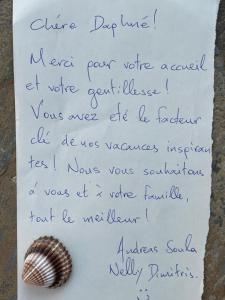 Chére Daphné!
Merci pour votre accueil
et votre gentillesse!
Vous avez été le facteur
clé de nos vacances inspiran
tes! Nous vous souhaitons
à vous et à votre famille,
tout le meilleur!
Andreas Soula
Nelly Dimitris.
:)